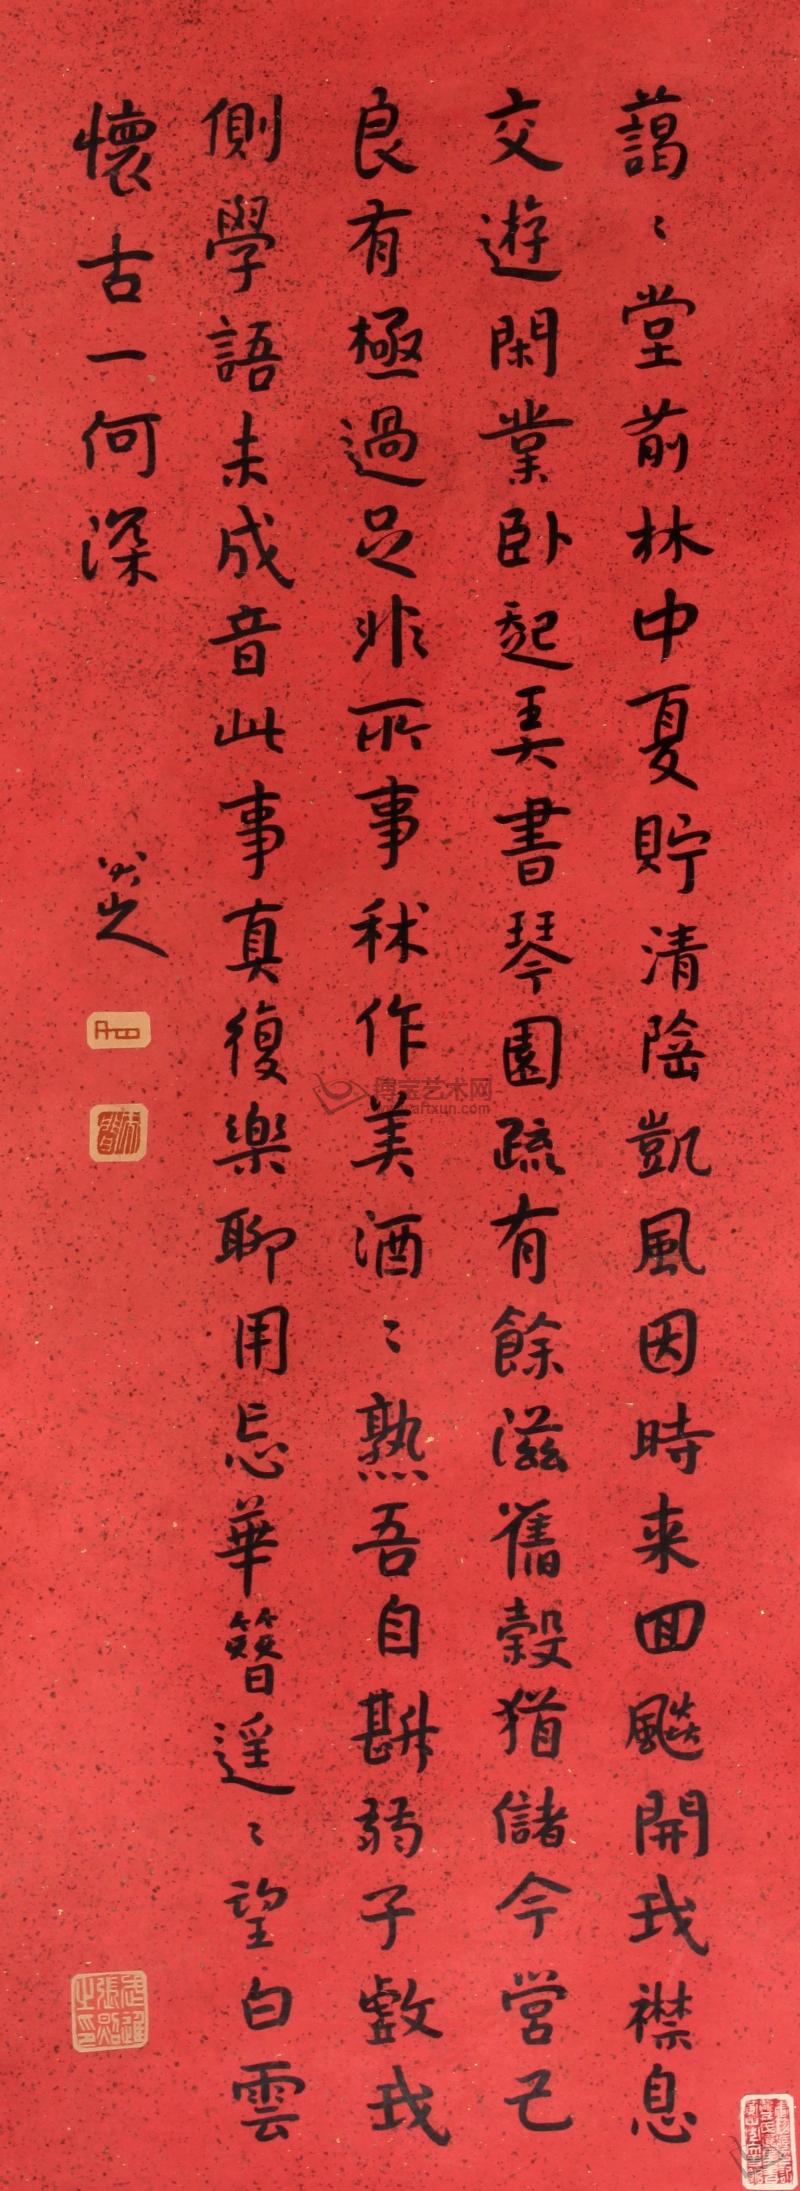 藹〻堂前林中夏貯清陰凱風因時来回飈開我襟息
交遊閑業卧起弄書琴園疏有餘滋舊穀猶儲今営己
良有極過足非所事秫作美酒〻熟吾自斟弱子戲我
側學語未成音此事真復樂聊用忘華簪遥〻望白雲
懷古一何深
八大山人
博宝艺术网
www.artxun.com